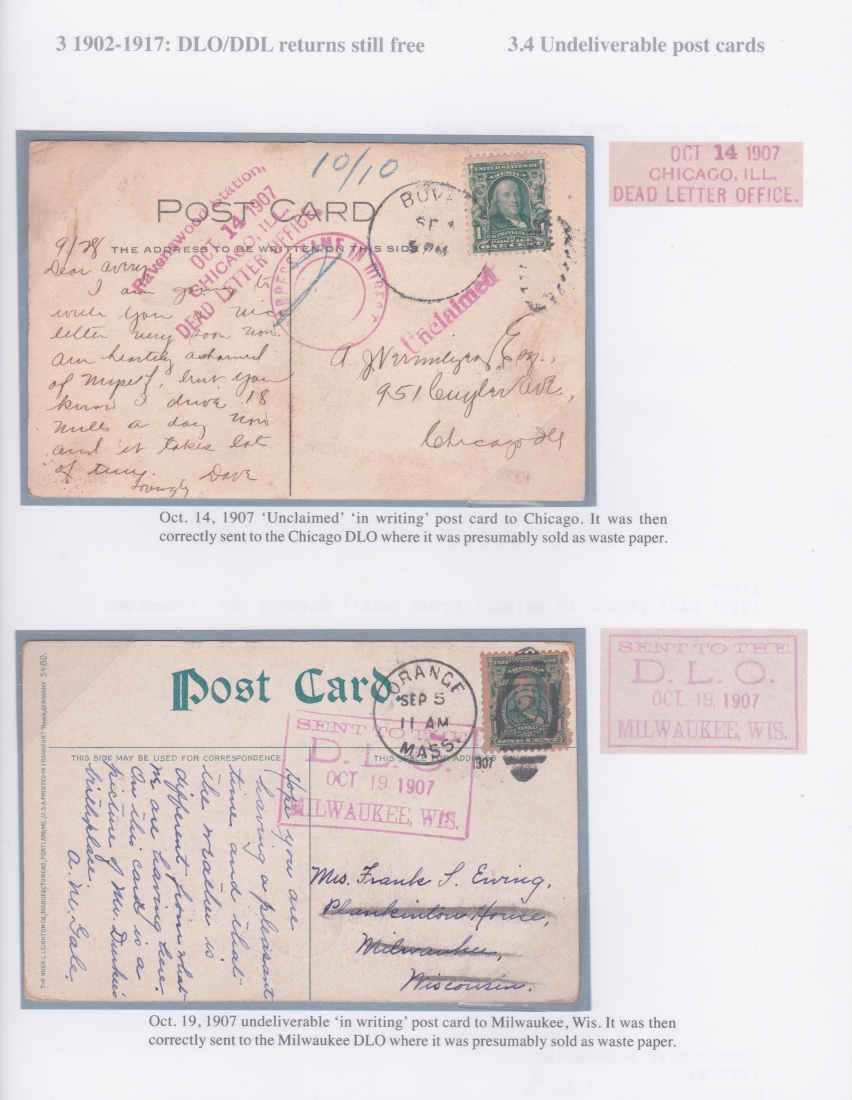 3 1902-1917: DLO/DDL returns still free
3.4 Undeliverable post cards
10/10
POST CARD
THE ADDRESS TO BE WRITTEN ON THIS SIDE
Ravenswood Station,
OCT 14 1907
CHICAGO, ILL.
DEAD LETTER OFFICE.
UNITED STATES OF
AMERICA
1
POSTAGE
ONE CENT
5 PM
Unclaimed
9/28
Dear Avery
I am going to
write you nice
letter very soon now.
am heartily ashamed
of myself, but you
know I drive 18
miles a day now
and it takes lot
of time.
Lovingly Dave
951 Cuyler Ave.,
Chicago Ill
OCT 14 1907
CHICAGO, ILL.
DEAD LETTER OFFICE.
Oct. 14, 1907 ‘Unclaimed’ ‘in writing’ post card to Chicago. It was then
correctly sent to the Chicago DLO where it was presumably sold as waste paper.
Post Card.
ORANGE
SEP 5
11 AM
MASS.
1907
THIS SIDE MAY BE USED FOR CORRESPONDENCE
THIS SPACE FOR ADDRESS
SENT TO THE
D. L. O.
OCT 19 1907
MILWAUKEE, WIS.
THE HUGH C. LEIGHTON CO., MANUFACTURERS, PORTLAND, ME., U.S.A. PRINTED IN FRANKFORT GERMANY 5480.
Hope you are
having a pleasant
time and that
the weather is
different from what
we are having here.
On this card is a
picture of Mr.
birthplace.
A. M. Gale.
Mrs. Frank S. Ewing,
Plankinton House,
Milwaukee,
Wisconsin.
SENT TO THE
D. L. O.
OCT. 19, 1907
MILWAUKEE, WIS.
Oct. 19, 1907 undeliverable ‘in writing’ post card to Milwaukee, Wis. It was then
correctly sent to the Milwaukee DLO where it was presumably sold as waste paper.